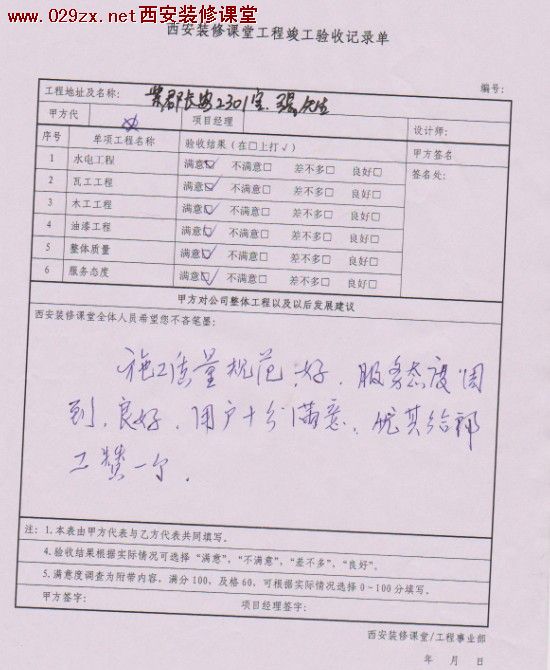 www.029zx.net西安装修课堂
西安装修课堂工程竣工验收记录单
编号：
工程地址及名称： 紫郡长安2301室
甲方代 项目经理 设计师：
序号 单项工程名称 验收结果（在□上打√） 甲方签名
1 水电工程 满意☑ 不满意□ 差不多□ 良好□ 签名处：
2 瓦工工程 满意☑ 不满意□ 差不多□ 良好□
3 木工工程 满意☑ 不满意□ 差不多□ 良好□
4 油漆工程 满意☑ 不满意□ 差不多□ 良好□
5 整体质量 满意☑ 不满意□ 差不多□ 良好□
6 服务态度 满意☑ 不满意□ 差不多□ 良好□
甲方对公司整体工程以及以后发展建议
西安装修课堂全体人员希望您不吝笔墨：
施工质量规范，好，服务态度周
到，良好，用户十分满意，尤其给郭
工赞一个．
注：1.本表由甲方代表与乙方代表共同填写。
4.验收结果根据实际情况可选择“满意”，“不满意”，“差不多”，“良好”。
5.满意度调查为附带内容。满分100，及格60，可根据实际情况选择0～100分填写。
甲方签字： 项目经理签字：
西安装修课堂/工程事业部
年 月 日